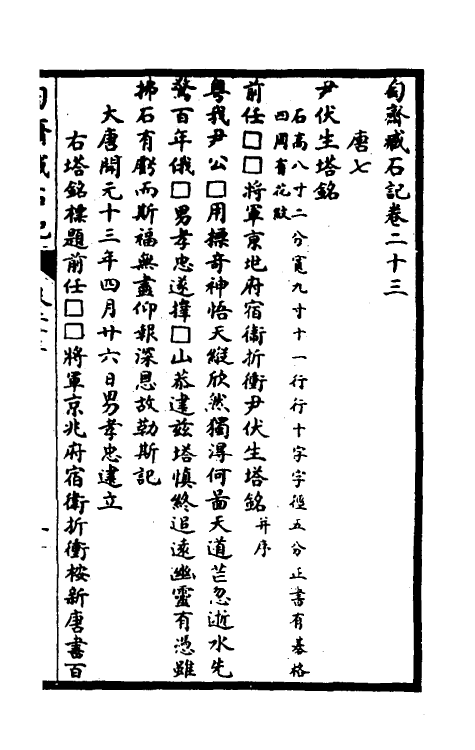 匋齋臧石記卷二十三
唐七
尹伏生塔銘
石高八寸二分寬九寸十一行行十字字徑五分正書有棊格
四周有花紋
前任□□將軍京地府宿衛折衝尹伏生塔銘并序
粵我尹公□用摽奇神悟天縱欣然獨淂何啚天道芒忽逝水先
驚百年俄□男孝忠遂擇□山恭建兹塔慎終追遠幽靈有憑雖
拂石有虧而斯福無盡仰報深恩故勒斯記
大唐開元十三年四月廿六日男孝忠建立
右塔銘標題前任□□將軍京兆府宿衛折衝桉新唐書百